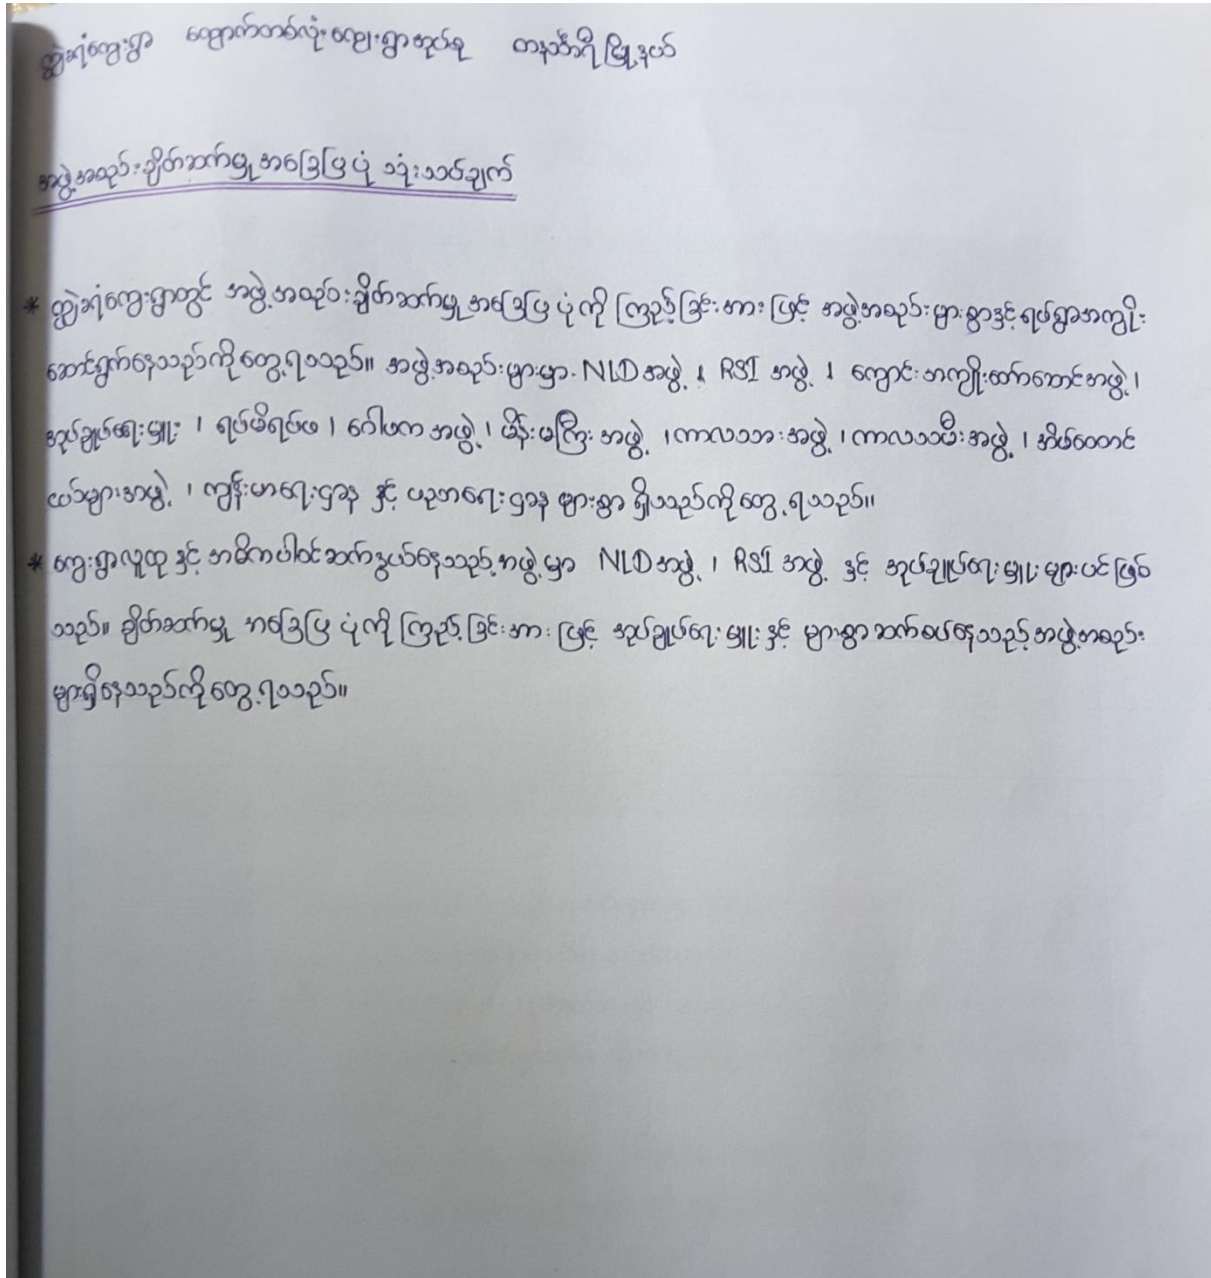 ကျွဲခုံကျေးရွာ ကျောက်တစ်လုံးကျေးရွာအုပ်စု တနင်္သာရီမြို့နယ်
အဖွဲ့အစည်းချိတ်ဆက်မှုအခြေပြပုံ သုံးသပ်ချက်
* ကျွဲခုံကျေးရွာတွင် အဖွဲ့အစည်းချိတ်ဆက်မှုအခြေပြပုံကို ကြည့်ခြင်းအားဖြင့် အဖွဲ့အစည်းများစွာနှင့်ရပ်ရွာအကျိုး
ဆောင်ရွက်နေသည်ကိုတွေ့ရသည်။ အဖွဲ့အစည်းများမှာ NLD အဖွဲ့ ၊ RSI အဖွဲ့ ၊ ကျောင်းအကျိုးတော်ဆောင်အဖွဲ့ ၊
အုပ်ချုပ်ရေးမှူး ၊ ရပ်မိရပ်ဖ ၊ ဂေါပကအဖွဲ့ ၊ မိန်းမကြီးအဖွဲ့ ၊ ကာလသားအဖွဲ့ ၊ ကာလသမီးအဖွဲ့ ၊ အိမ်ထောင်
ငယ်များအဖွဲ့ ၊ ကျန်းမာရေးဌာန နှင့် ပညာရေးဌာန များစွာ ရှိသည်ကိုတွေ့ရသည်။
* ကျေးရွာလူထု နှင့် အဓိကပါဝင်ဆက်နွယ်နေသည့်အဖွဲ့မှာ NLD အဖွဲ့ ၊ RSI အဖွဲ့ နှင့် အုပ်ချုပ်ရေးမှူးများပင်ဖြစ်
သည်။ ချိတ်ဆက်မှု အခြေပြပုံကို ကြည့်ခြင်းအားဖြင့် အုပ်ချုပ်ရေးမှူးနှင့် များစွာဆက်စပ်နေသည့်အဖွဲ့အစည်း
များရှိနေသည်ကိုတွေ့ရသည်။